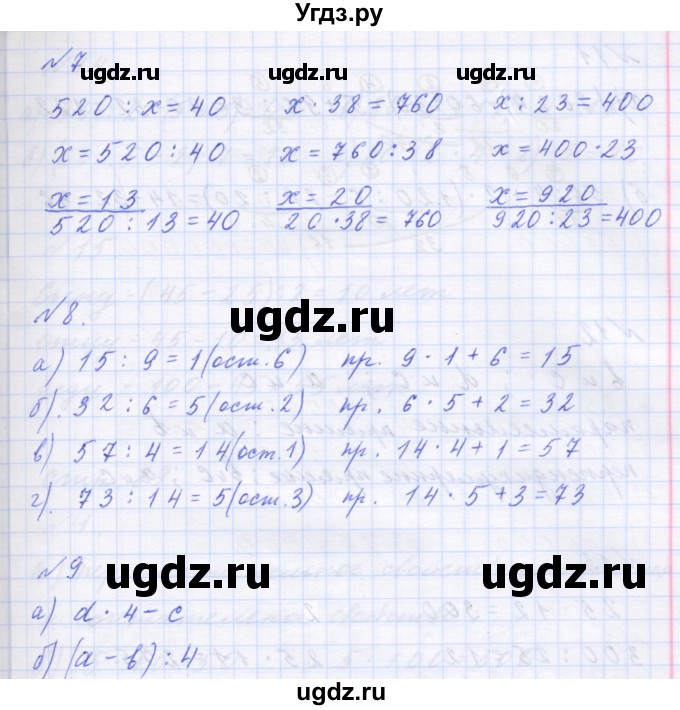 Угдз.ру
№7
ugdz.ru ugdz.ru ugdz.ru
520 : x = 40 x · 38 = 760 x : 23 = 400
x = 520 : 40 x = 760 : 38 x = 400 · 23
x = 13 x = 20 x = 920
520 : 13 = 40 20 · 38 = 760 920 : 23 = 400
№8.
ugdz.ru
а) 15 : 9 = 1 (ост. 6) пр. 9 · 1 + 6 = 15
б). 32 : 6 = 5 (ост. 2) пр. 6 · 5 + 2 = 32
в) 57 : 4 = 14 (ост. 1) пр. 14 · 4 + 1 = 57
г). 73 : 14 = 5 (ост. 3) пр. 14 · 5 + 3 = 73
№9
ugdz.ru ugdz.ru
а) d · 4 – c
б) (a – b) : 4
ugdz.ru